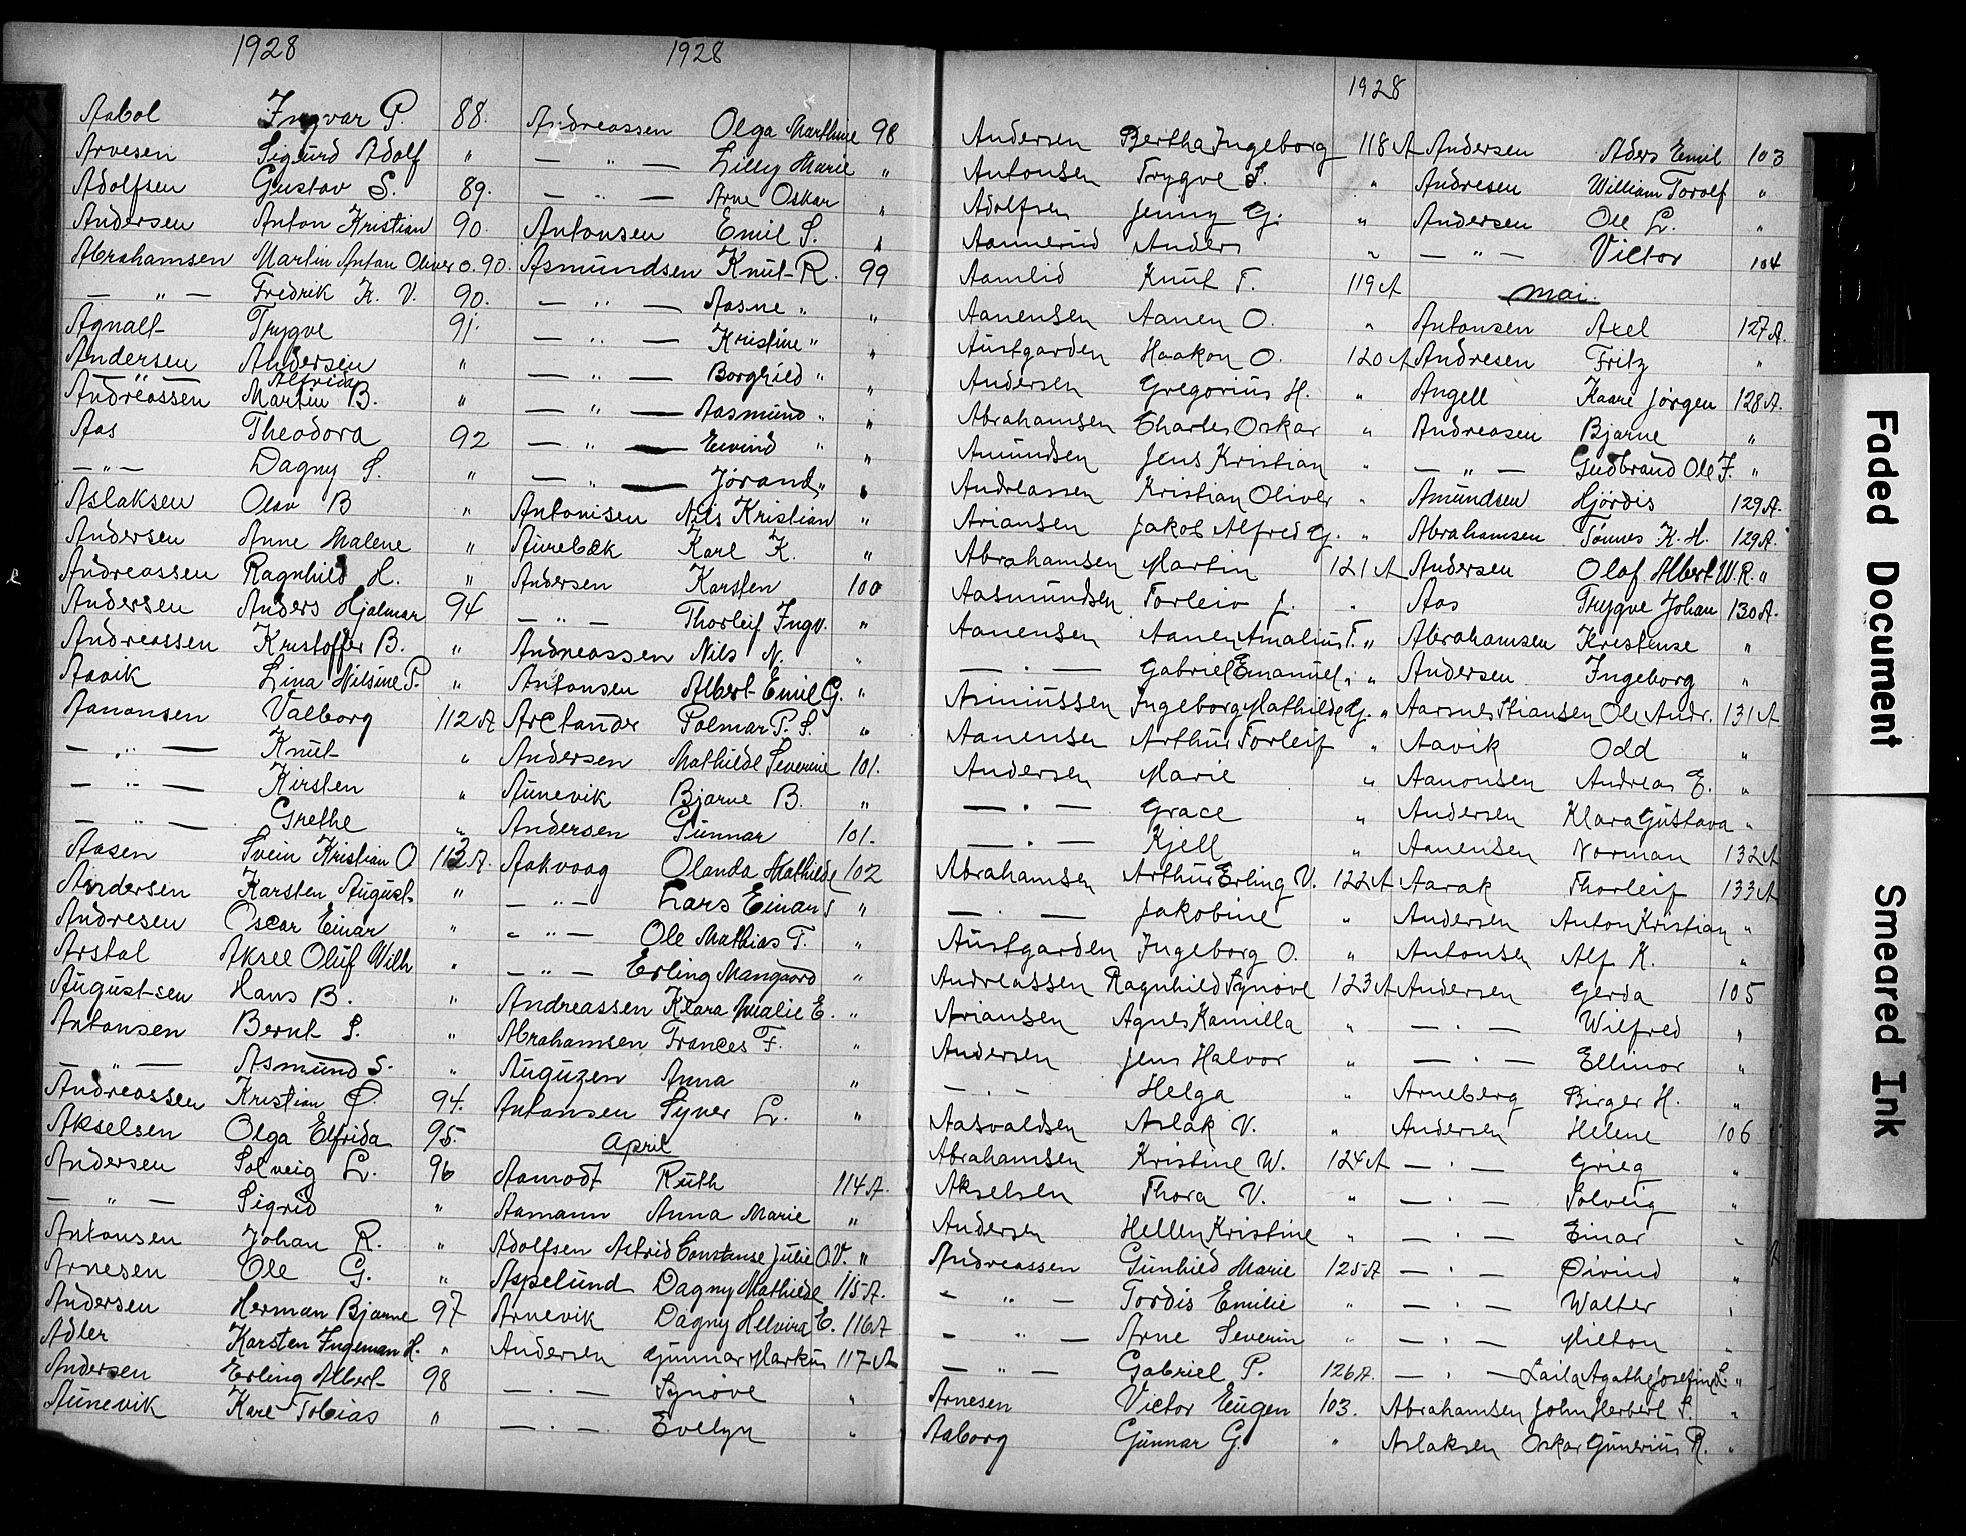 1928
Aabol Ingvar P. 88.
Arvesen Sigurd Adolf "
Adolfsen Gustav S. 89.
Andersen Anton Kristian 90.
Abrahamsen Martin Anton Oliver O. 90.
— " — Fredrik K. V. 90.
Agnalt Trygve 91.
Andersen Andersen Alfrida "
Andreassen Martin B. "
Aas Theodora 92
— " — Dagny S. "
Aslaksen Olav B "
Andersen Anne Malene "
Andreassen Ragnhild H. "
Andersen Anders Hjalmar 94
Andreassen Kristoffer B. "
Aavik Lina Nilsine P. "
Aanonsen Valborg 112 A
— " — Knut "
— " — Kirsten "
— " — Grethe "
Aasen Svein Kristian O 113 A.
Andersen Karsten August "
Andresen Oscar Einar "
Arstal Aksel Oluf Wilh "
Augustsen Hans B. "
Antonsen Bernt S. "
— " — Asmund S. "
Andreassen Kristian O 94.
Akselsen Olga Elfrida 95.
Andersen Solveig L. 96
— " — Sigrid "
Antonsen Johan R. "
Arnesen Ole G. "
Andersen Herman Bjarne 97
Adler Karsten Ingeman H. "
Andersen Erling Albert 98
Aunevik Karl Tobias "
1928
Andreassen Olga Marthine 98
— " — Lilly Marie "
— " — Arne Oskar "
Antonsen Emil S. "
Asmundsen Knut R. 99
— " — Aasne " "
— " — Kristine " "
— " — Borghild " "
— " — Aasmund " "
— " — Eivind " "
— " — Jørand " "
Antonisen Nils Kristian "
Aurebæk Karl K. "
Andersen Karsten 100
— " — Thorleif Ingv. "
Andreassen Nils N. "
Antonsen Albert Emil G. "
Arctander Polmar P. S. "
Andersen Mathilde Severine 101.
Aunevik Bjarne B. "
Andersen Gunnar 101.
Aakvaag Olanda Mathilde 102
— " — Lars Einar T "
— " — Ole Mathias T. "
— " — Erling Mangaard "
Andreassen Klara Malie E. "
Abrahamsen Frances F. "
Auguzen Anna "
Antonsen Syver L. "
April
Aamodt Ruth 114 A.
Aamann Anna Marie "
Adolfsen Astrid Constanse Julie O.V. "
Aspelund Dagny Mathilde 115 A.
Arnevik Dagny Helvira E. 116 A
Andersen Gunnar Markus 117 A
— " — Synøve "
— " — Evelyn "
1928
Andersen Bertha Ingeborg 118 A
Antonsen Trygve S. "
Adolfsen Jenny G. "
Aannerud Anders "
Aamlid Knut T. 119 A
Aanensen Aanen O. "
Austgarden Haakon O. 120 A
Andersen Gregorius H. "
Abrahamsen Charles Oskar "
Amundsen Jens Kristian "
Andreassen Kristian Oliver "
Ariansen Jakob Alfred G. "
Abrahamsen Martin 121 A
Aasmundsen Torleiv J. "
Aanensen Aanen Amalius T. "
— " — Gabriel Emanuel " "
Asmussen Ingeborg Mathilde G. "
Aanensen Arthur Torleif "
Andersen Marie "
— " — Grace "
— " — Kjell "
Abrahamsen Arthur Erling V. 122 A
— " — Jakobine "
Austgarden Ingeborg O. "
Andreassen Ragnhild Synøve 123 A
Ariansen Agnes Kamilla "
Andersen Jens Halvor "
— " — Helga "
Aasvaldsen Aslak V. "
Abrahamsen Kristine W. 124 A
Akselsen Thora V. "
Andersen Hellen Kristine "
Andreassen Gunhild Marie 125 A
— " — Tordis Emilie "
— " — Arne Severin "
— " — Gabriel P. 126 A.
Arnesen Victor Eugen 103.
Aaborg Gunnar G. "
Andersen Aders Emil 103
Andresen William Torolf "
Andersen Ole L. "
— " — Victor 104
Mai.
Antonsen Axel 127 A.
Andresen Fritz "
Angell Kaare Jørgen 128 A.
Andreasen Bjarne "
— " — Gudbrand Ole F. "
Amundsen Hjørdis 129 A.
Abrahamsen Tønnes K. H. 129 A.
Andersen Olaf Albert W. R. "
Aas Trygve Johan 130 A.
Abrahamsen Kristense "
Andersen Ingeborg "
Aarsnes Stiansen Ole Andr. 131 A
Aavik Odd "
Aanonsen Andreas E. "
Andersen Klara Gustava "
Aanensen Norman 132 A
Aarak Thorleif 133 A
Andersen Anton Kristian "
Antonsen Alf K. "
Andersen Gerda 105
— " — Wilfred "
— " — Ellinor "
Arneberg Birger H. "
Andersen Helene 106
— " — Grieg "
— " — Solveig "
— " — Einar "
— " — Øivind "
— " — Walter "
— " — Milton "
— " — Laila Agathe Josefine L. "
Abrahamsen John Herbert S. "
Aslaksen Oskar Gunerius R. "
Faded Document
Smeared Ink